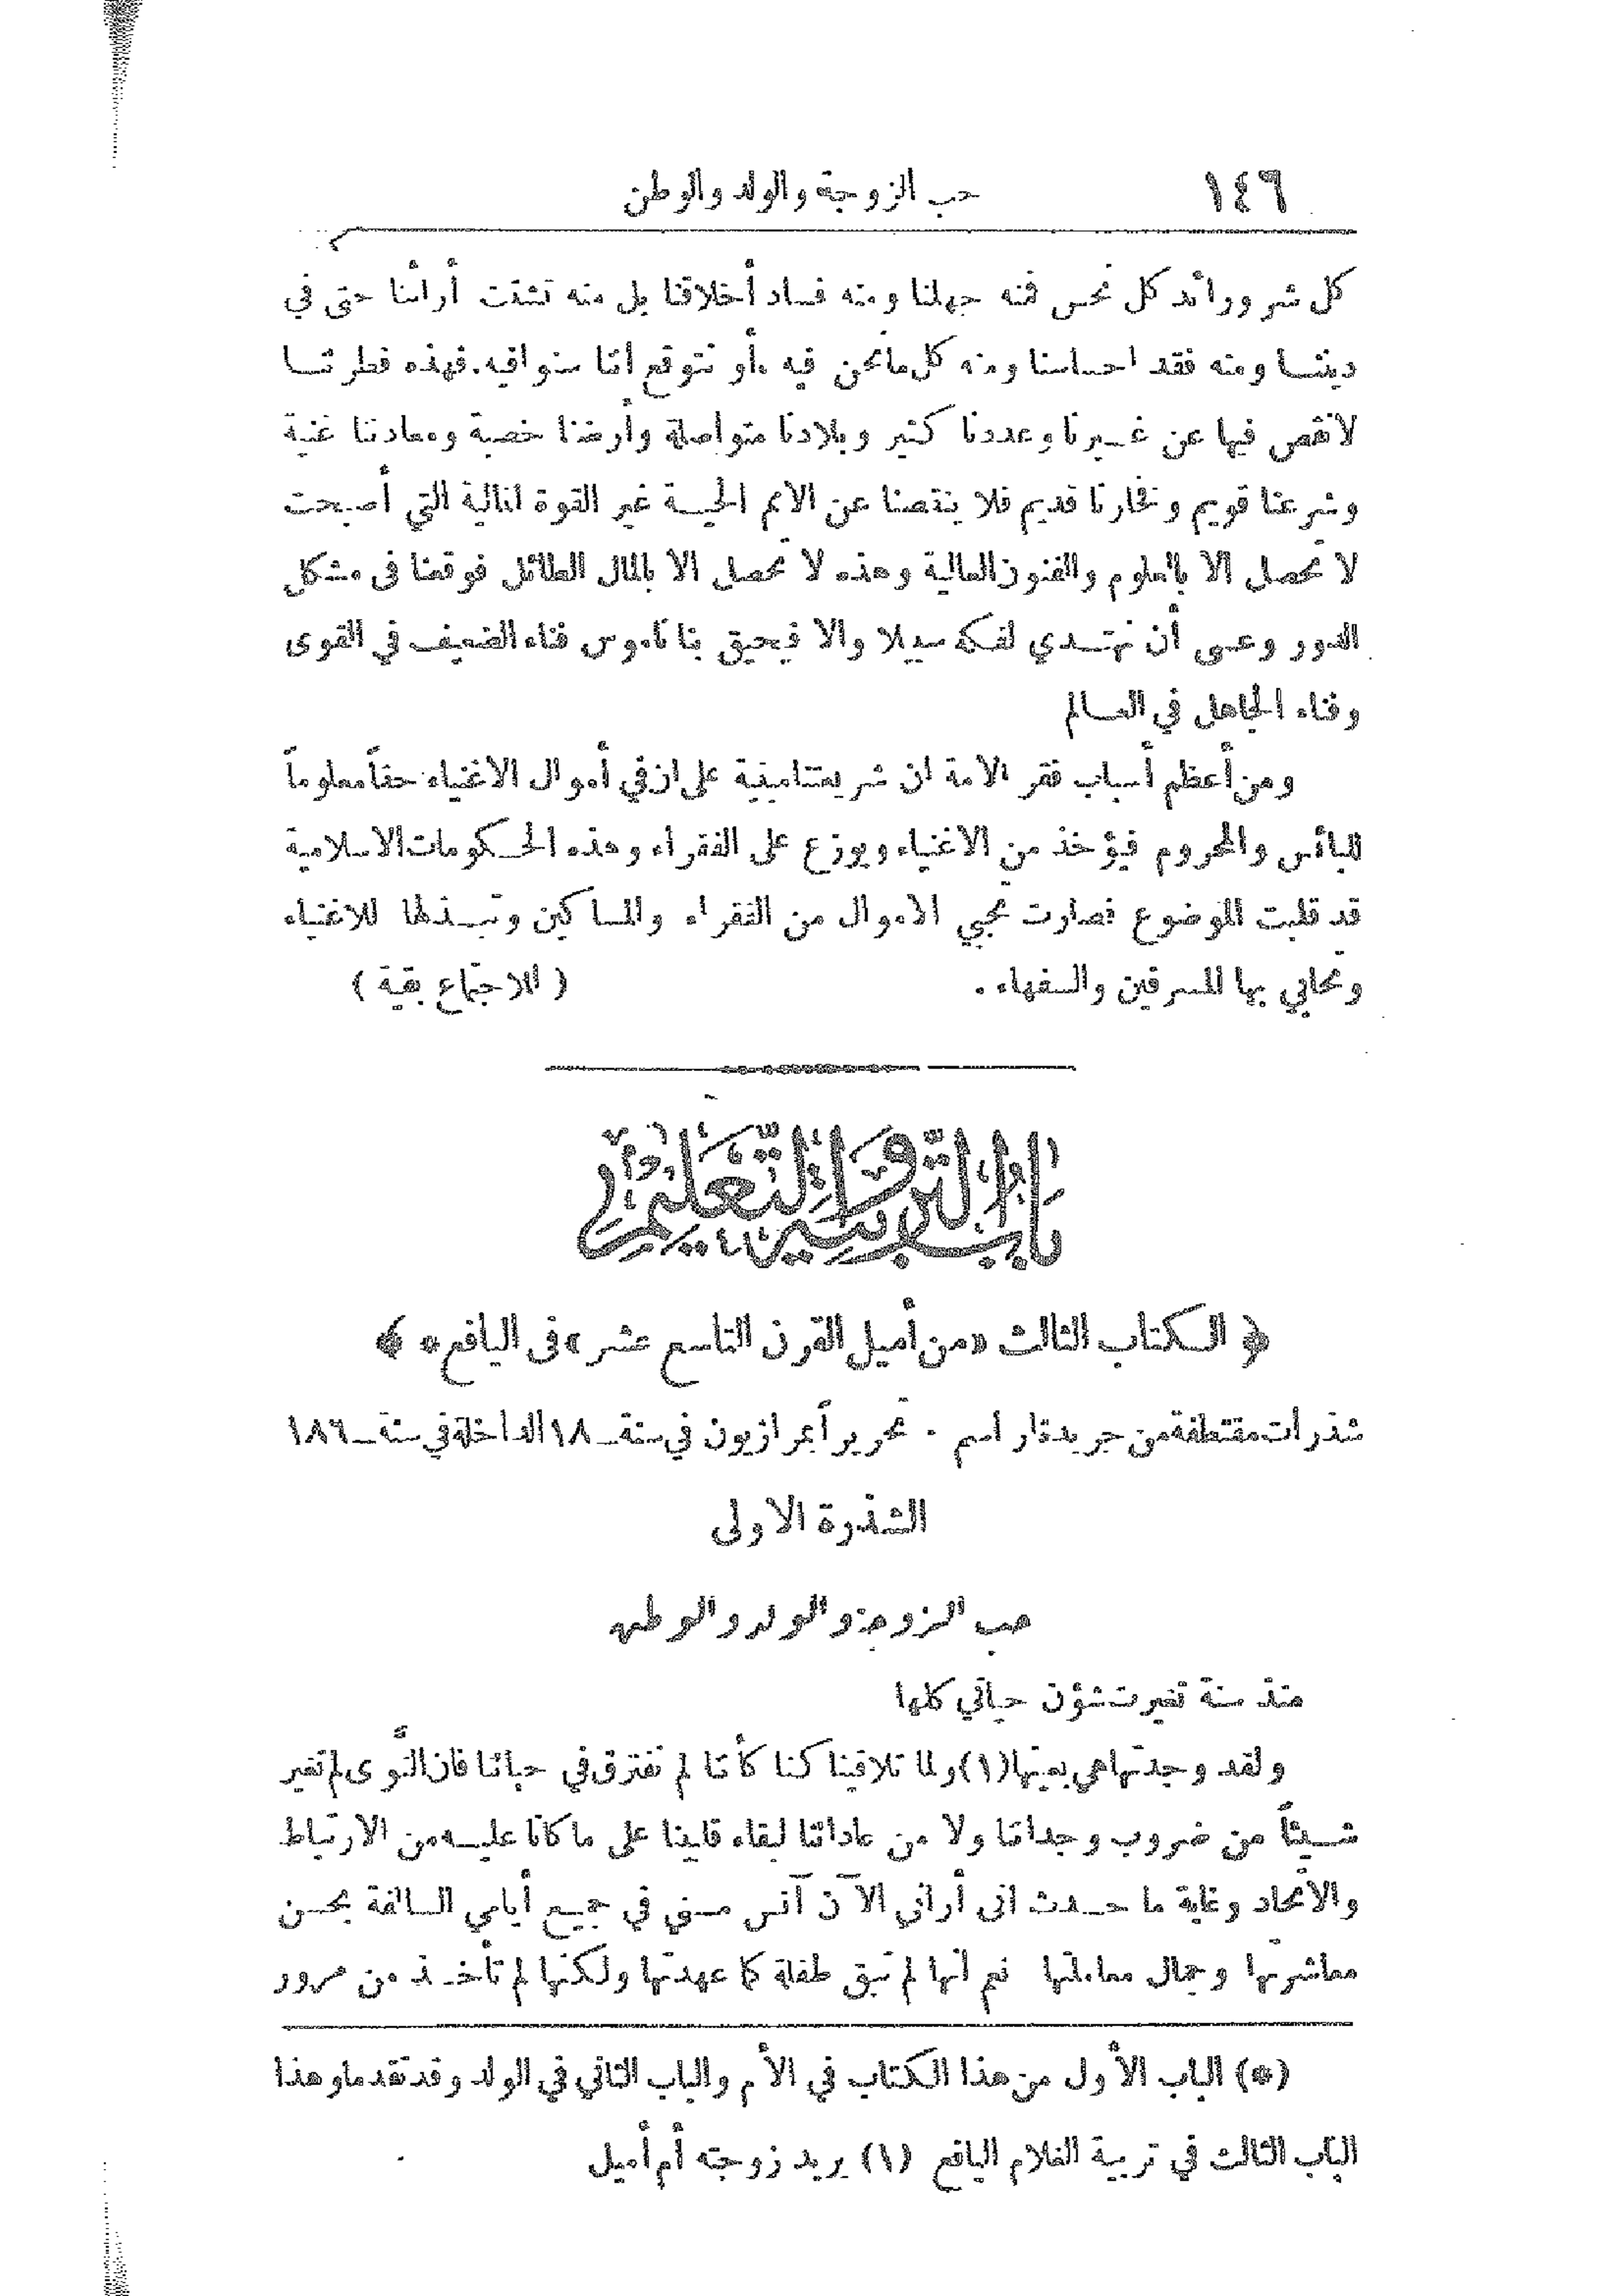 ١٤٦ حب الزوجة والولد والوطن
كل شر ورائد كل نحس فمنه جهلنا ومنه فساد أخلاقنا بل منه تشتت أرائنا حتى في
ديننا ومنه فقد احساسنا ومنه كل مانحن فيه أو نتوقع أننا سنوافيه. فهذه فطرتنا
لا نقص فيها عن غيرنا وعددنا كثير وبلادنا متواصلة وأرضنا خصبة ومعادننا غنية
وشرعنا قويم وفخارنا قديم فلا ينقصنا عن الامم الحية غير القوة المالية التي أصبحت
لا تحصل الا بالعلوم والفنون العالية وهذه لا تحصل الا بالمال الطائل فوقعنا في مشكل
الدور وعسى أن نهتدي لفكه سبيلا والا فيحيق بنا ناموس فناء الضعيف في القوى
وفناء الجاهل في العالم
ومن أعظم أسباب فقر الامة ان شريعتنا مبنية على ان في أموال الاغنياء حقاً معلوماً
للبائس والمحروم فيؤخذ من الاغنياء ويوزع على الفقراء وهذه الحكومات الاسلامية
قد قلبت الموضوع فصارت تجبي الاموال من الفقراء والمساكين وتبذلها للاغنياء
وتحابي بها المسرفين والسفهاء . ( للاجتماع بقية )
باب التربية والتعليم
﴿ الكتاب الثالث «من أميل القرن التاسع عشر» في اليافع* ﴾
شذرات مقتطفة من جريدة دار اسم . تحرير أبمر ازيون في سنة ــ١٨ الداخلة في سنة ــ١٨٦
الشذرة الاولى
حب الزوجة والولد والوطن
منذ سنة تغيرت شؤن حياتي كلها
ولقد وجدتها هي بعينها (١) ولما تلاقينا كنا كأننا لم نفترق في حياتنا فان النوى لم تغير
شيئاً من ضروب وجداننا ولا من عاداتنا لبقاء قلبينا على ما كانا عليه من الارتباط
والاتحاد وغاية ما حدث اني أراني الآن آنس مني في جميع أيامي السالفة بحسن
معاشرتها وجمال معاملتها نعم انها لم تبق طفلة كما عهدتها ولكنها لم تأخذ من مرور
(*) الباب الأول من هذا الكتاب في الأم والباب الثاني في الولد وقد تقدما وهذا
الباب الثالث في تربية الغلام اليافع (١) يريد زوجته أم أميل